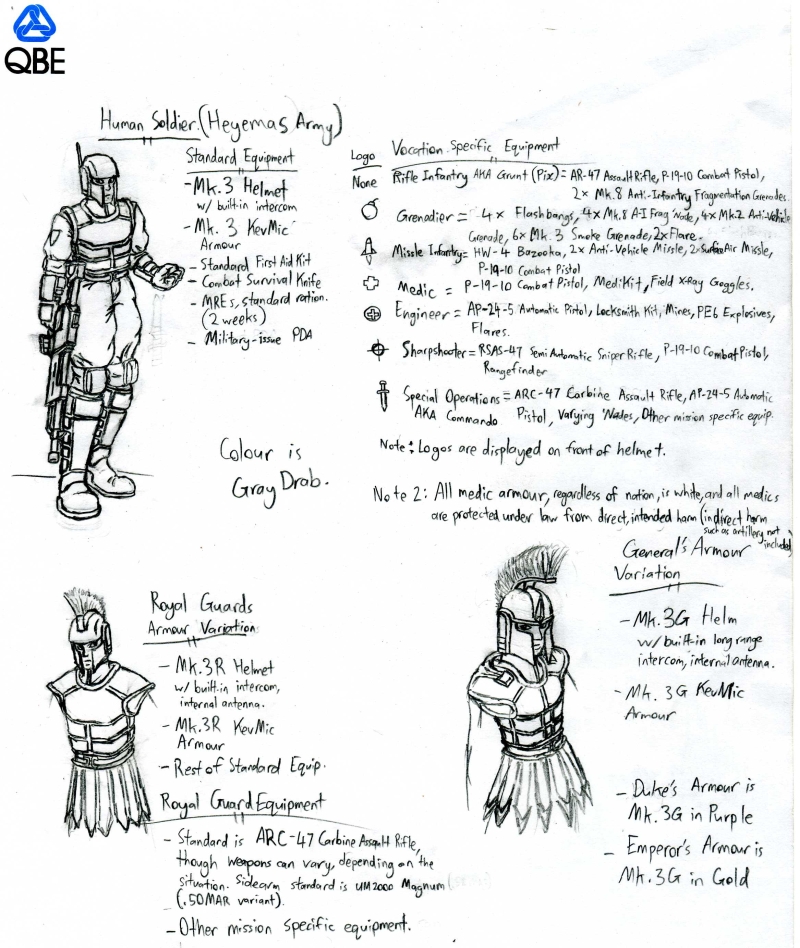 QBE
Human Soldier. (Heyemas Army)
Standard Equipment
- Mk.3 Helmet
w/ built-in intercom
- Mk. 3 KevMic
Armour
- Standard First Aid Kit
- Combat Survival Knife
- MREs, standard ration.
(2 weeks)
- Military-issue PDA
Colour is
Gray Drab.
Logo Vocation Specific Equipment
None Rifle Infantry AKA Grunt (Pix) = AR-47 Assault Rifle, P-19-10 Combat Pistol,
2x Mk.8 Anti-Infantry Fragmentation Grenades.
Grenadier = 4x Flashbangs, 4x Mk.8 A-I Frag 'Nade, 4x Mk.2 Anti-Vehicle
Grenade, 6x Mk.3 Smoke Grenade, 2x Flare.
Missle Infantry = HW-4 Bazooka, 2x Anti-Vehicle Missle, 2x Air Missle,
P-19-10 Combat Pistol
Medic = P-19-10 Combat Pistol, MediKit, Field X-Ray Goggles.
Engineer = AP-24-5 Automatic Pistol, Locksmith Kit, Mines, PE6 Explosives,
Flares.
Sharpshooter = RSAS-47 Semi Automatic Sniper Rifle, P-19-10 Combat Pistol,
Rangefinder
Special Operations = ARC-47 Carbine Assault Rifle, AP-24-5 Automatic
AKA Commando Pistol, Varying 'Nades, Other mission specific equip.
Note: Logos are displayed on front of helmet.
Note 2: All medic armour, regardless of nation, is white, and all medics
are protected under law from direct, intended harm (indirect harm
such as artillery not
included)
Royal Guards
Armour Variation
- Mk.3R Helmet
w/ built-in intercom,
internal antenna.
- Mk.3R KevMic
Armour
- Rest of Standard Equip.
Royal Guard Equipment
- Standard is ARC-47 Carbine Assault Rifle,
though weapons can vary, depending on the
situation. Sidearm standard is UM2000 Magnum
(.50MAR variant).
- Other mission specific equipment.
General's Armour
Variation
- Mk.3G Helm
w/ built-in long range
intercom, internal antenna.
- Mk. 3G KevMic
Armour
- Duke's Armour is
Mk.3G in Purple
- Emperor's Armour is
Mk.3G in Gold